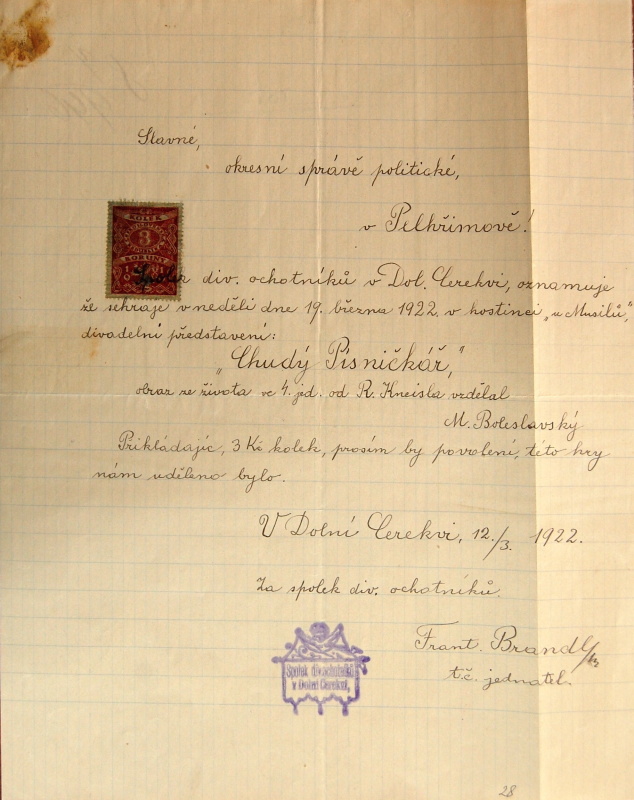 Slavné,
okresní správě politické,
v Pelhřimově!
KOLEK
3
KORUNY
Spolek div. ochotníků v Dol. Cerekvi, oznamuje
že sehraje v neděli dne 19. března 1922 v hostinci „u Musilů",
divadelní představení:
„Chudý Písničkář,"
obraz ze života ve 4. jed. od R. Kneisla vzdělal
M. Boleslavský
Přikládajíc, 3 Kč kolek, prosím by povolení, této hry
nám uděleno bylo.
V Dolní Cerekvi, 12./3. 1922.
Za spolek div. ochotníků.
Frant. Brandl
t.č. jednatel.
Spolek div. ochotníků
v Dolní Cerekvi,
28